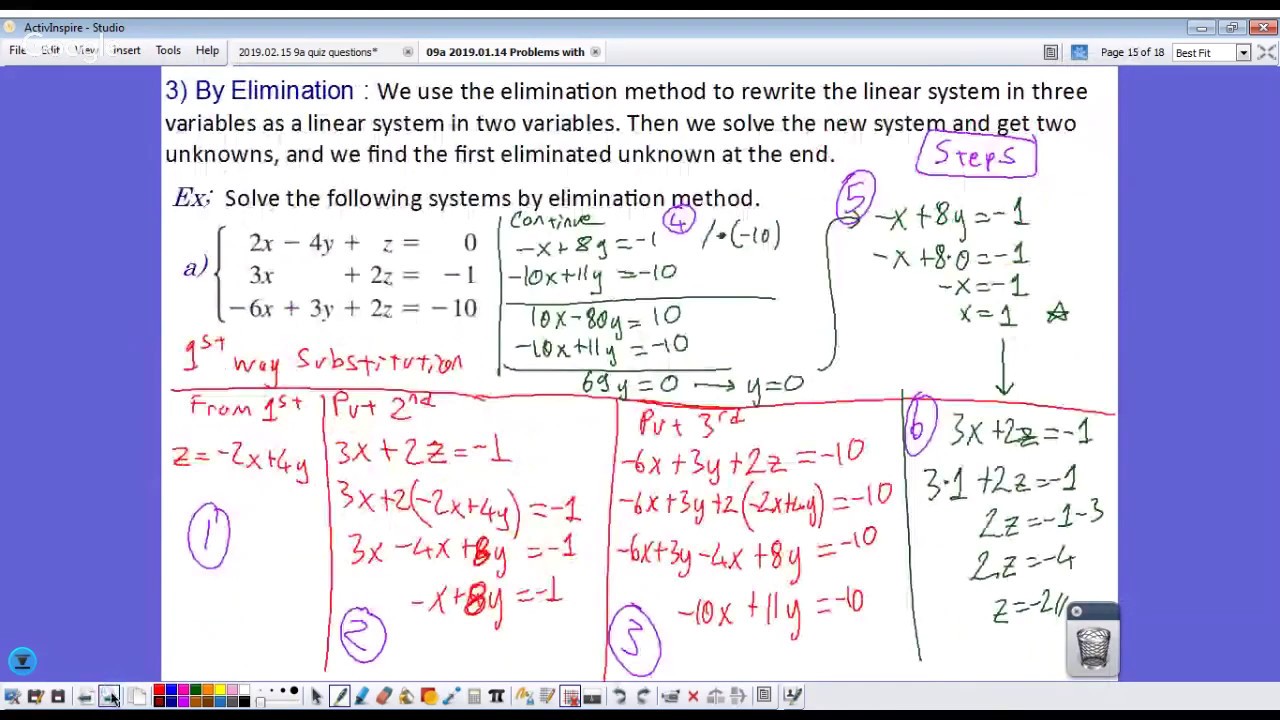 ActivInspire - Studio
File Edit View Insert Tools Help
2019.02.15 9a quiz questions*
09a 2019.01.14 Problems with
Page 15 of 18
Best Fit
3) By Elimination : We use the elimination method to rewrite the linear system in three
variables as a linear system in two variables. Then we solve the new system and get two
unknowns, and we find the first eliminated unknown at the end.
Steps
Ex; Solve the following systems by elimination method.
a) 2x − 4y + z = 0
3x + 2z = −1
−6x + 3y + 2z = −10
1st way Substitution
From 1st
z=-2x+4y
1
Put 2nd
3x+2z=-1
3x+2(-2x+4y)=-1
3x-4x+8y=-1
-x+8y=-1
2
Put 3rd
-6x+3y+2z=-10
-6x+3y+2(-2x+4y)=-10
-6x+3y-4x+8y=-10
-10x+11y=-10
3
Continue
4
-x+8y=-1 /•(-10)
-10x+11y=-10
10x-80y=10
-10x+11y=-10
69y=0 → y=0
5
-x+8y=-1
-x+8•0=-1
-x=-1
x=1
6
3x+2z=-1
3•1+2z=-1
2z=-1-3
2z=-4
z=-2//